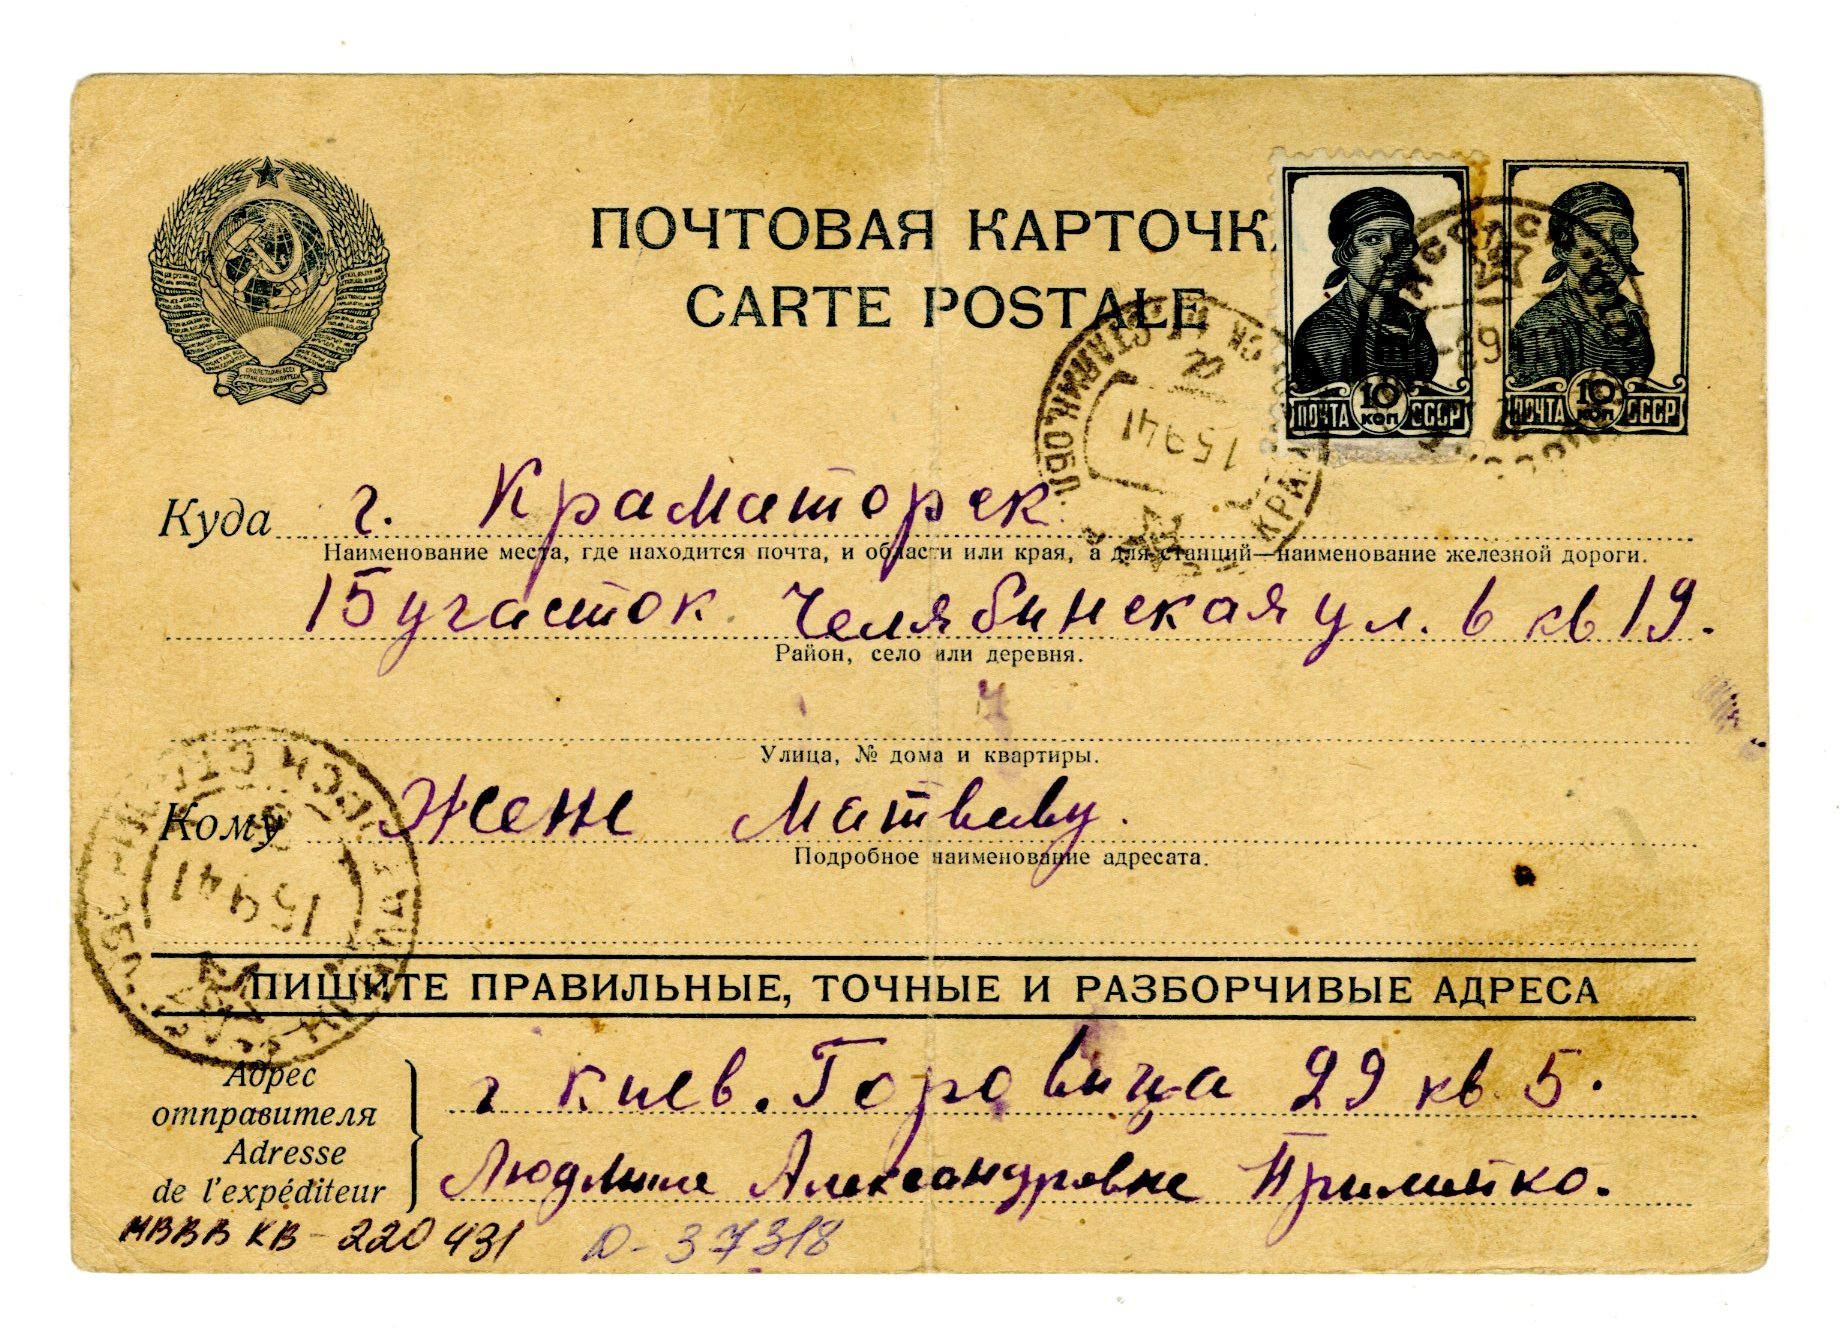 ПОЧТОВАЯ КАРТОЧК
CARTE POSTALE
ПОЧТА 10 КОП СССР
ПОЧТА 10 КОП СССР
15 9 41
Куда г. Краматорск
Наименование места, где находится почта, и области или края, а для станций—наименование железной дороги.
15 участок Челябинская ул. 6 кв 19.
Район, село или деревня.
Улица, № дома и квартиры.
Кому Жене Матвееву.
Подробное наименование адресата.
15 9 41
ПИШИТЕ ПРАВИЛЬНЫЕ, ТОЧНЫЕ И РАЗБОРЧИВЫЕ АДРЕСА
Адрес отправителя
Adresse de l'expéditeur
г Киев. Горовица 29 кв 5.
Людмиле Александровне
КВ-220431 37318